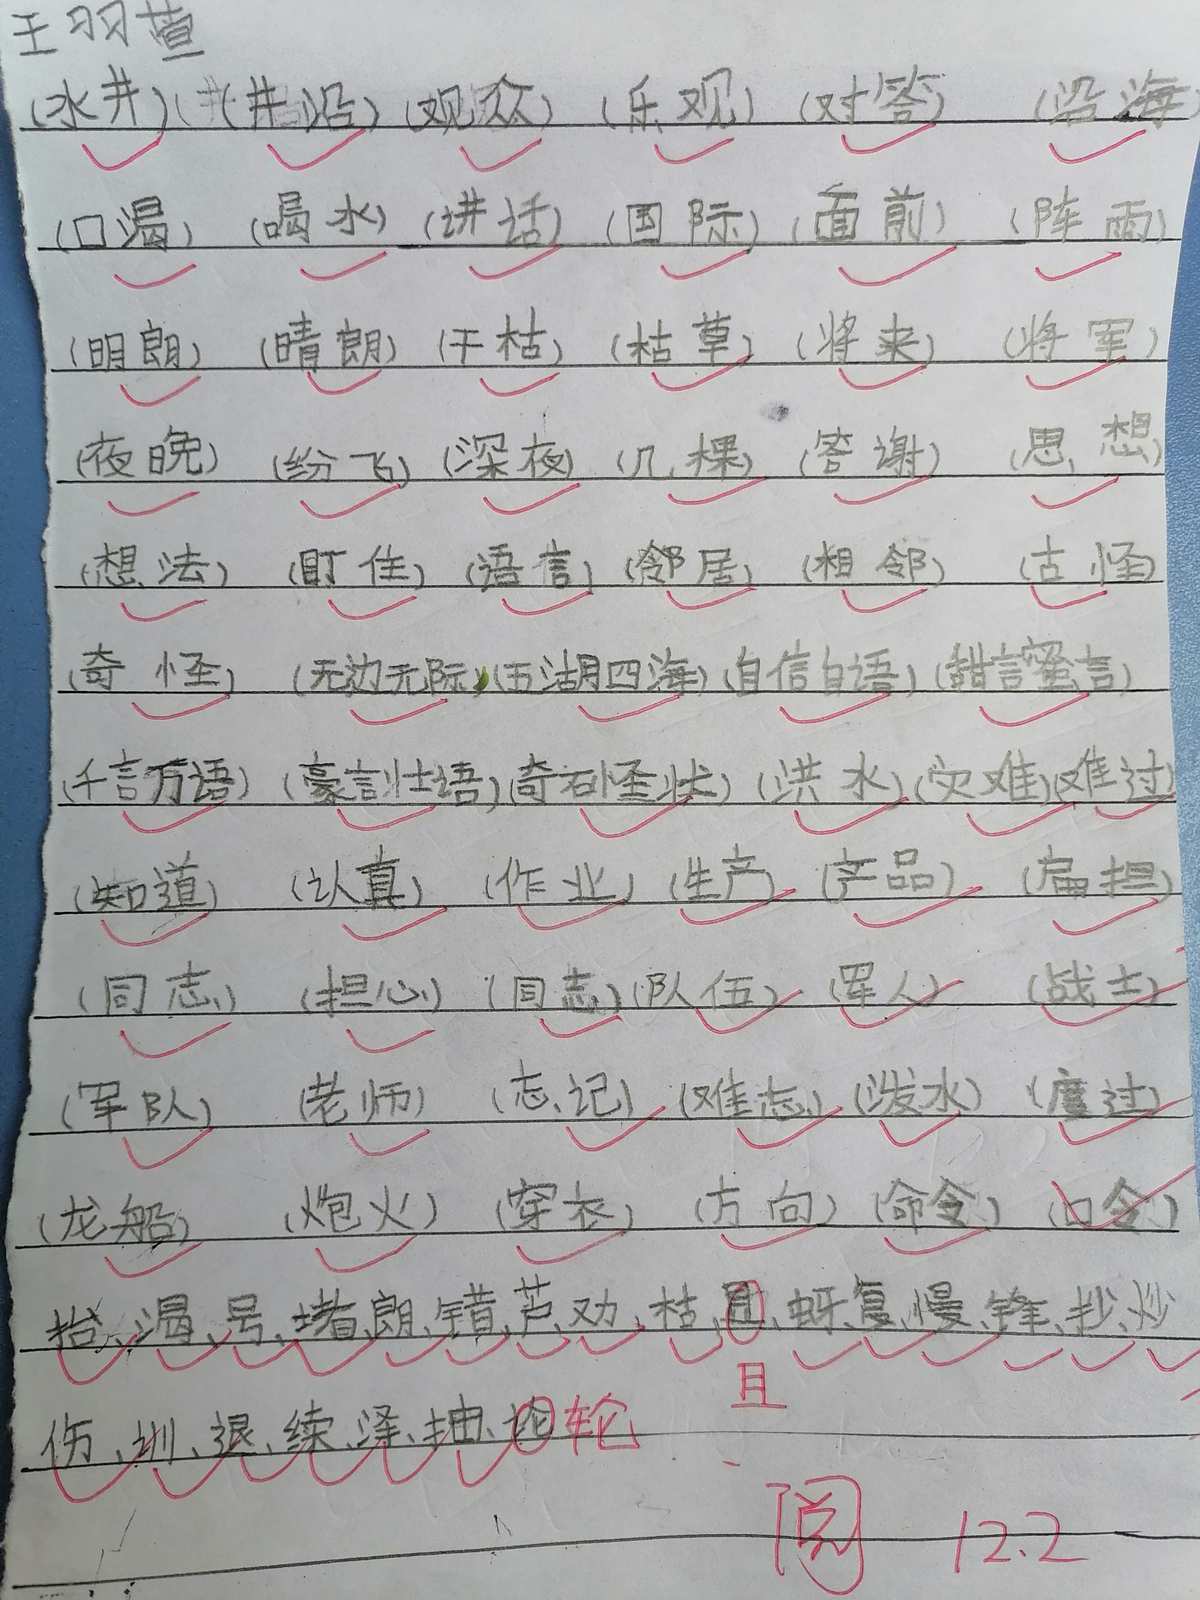 王羽萱
(水井)(井沿)(观众)(乐观)(对答)(沿海
(口渴)(喝水)(讲话)(国际)(面前)(阵雨)
(明朗)(晴朗)(干枯)(枯草)(将来)(将军)
(夜晚)(纷飞)(深夜)(几棵)(答谢)(思想)
(想法)(盯住)(语信)(邻居)(相邻)(古怪)
(奇怪)(无边无际)(五湖四海)(自信自语)(甜言蜜言)
(千言万语)(豪言壮语)(奇石怪状)(洪水)(灾难)(难过)
(知道)(认真)(作业)(生产)(产品)(扁担)
(同志)(担心)(同志)(队伍)(军人)(战士)
(军队)(老师)(志记)(难志)(泼水)(度过)
(龙船)(炮火)(穿衣)(方向)(命令)(口令)
抬、渴、号、堵、朗、错、芦、劝、枯、蚜、复、慢、锋、抄、炒
且
伤、训、退、续、泽、抽、轮
阅 12.2